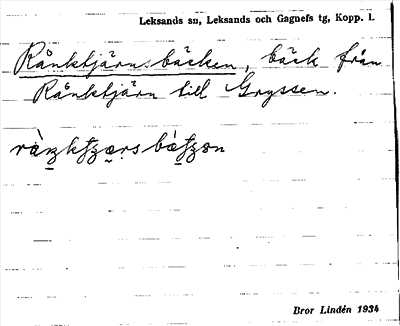 Leksands sn, Leksands och Gagnefs tg, Kopp. l.
Rånktjärnsbäcken, bäck från
Rånktjärn till Gryssen.
Bror Lindén 1934